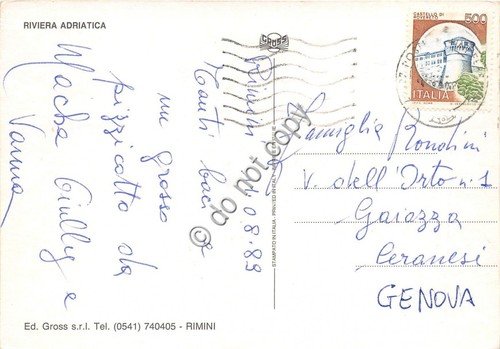 RIVIERA ADRIATICA
Rimini 1.08.89
Tanti baci e
un grosso
pizzicotto da
Giully e
Vanna
GROSS
STAMPATO IN ITALIA - PRINTED IN ITALY
CASTELLO DI
500
ITALIA
Famiglia Rondini
V. dell'Orto n. 1
Gaiazza
Ceranesi
GENOVA
Ed. Gross s.r.l. Tel. (0541) 740405 - RIMINI
© do not copy